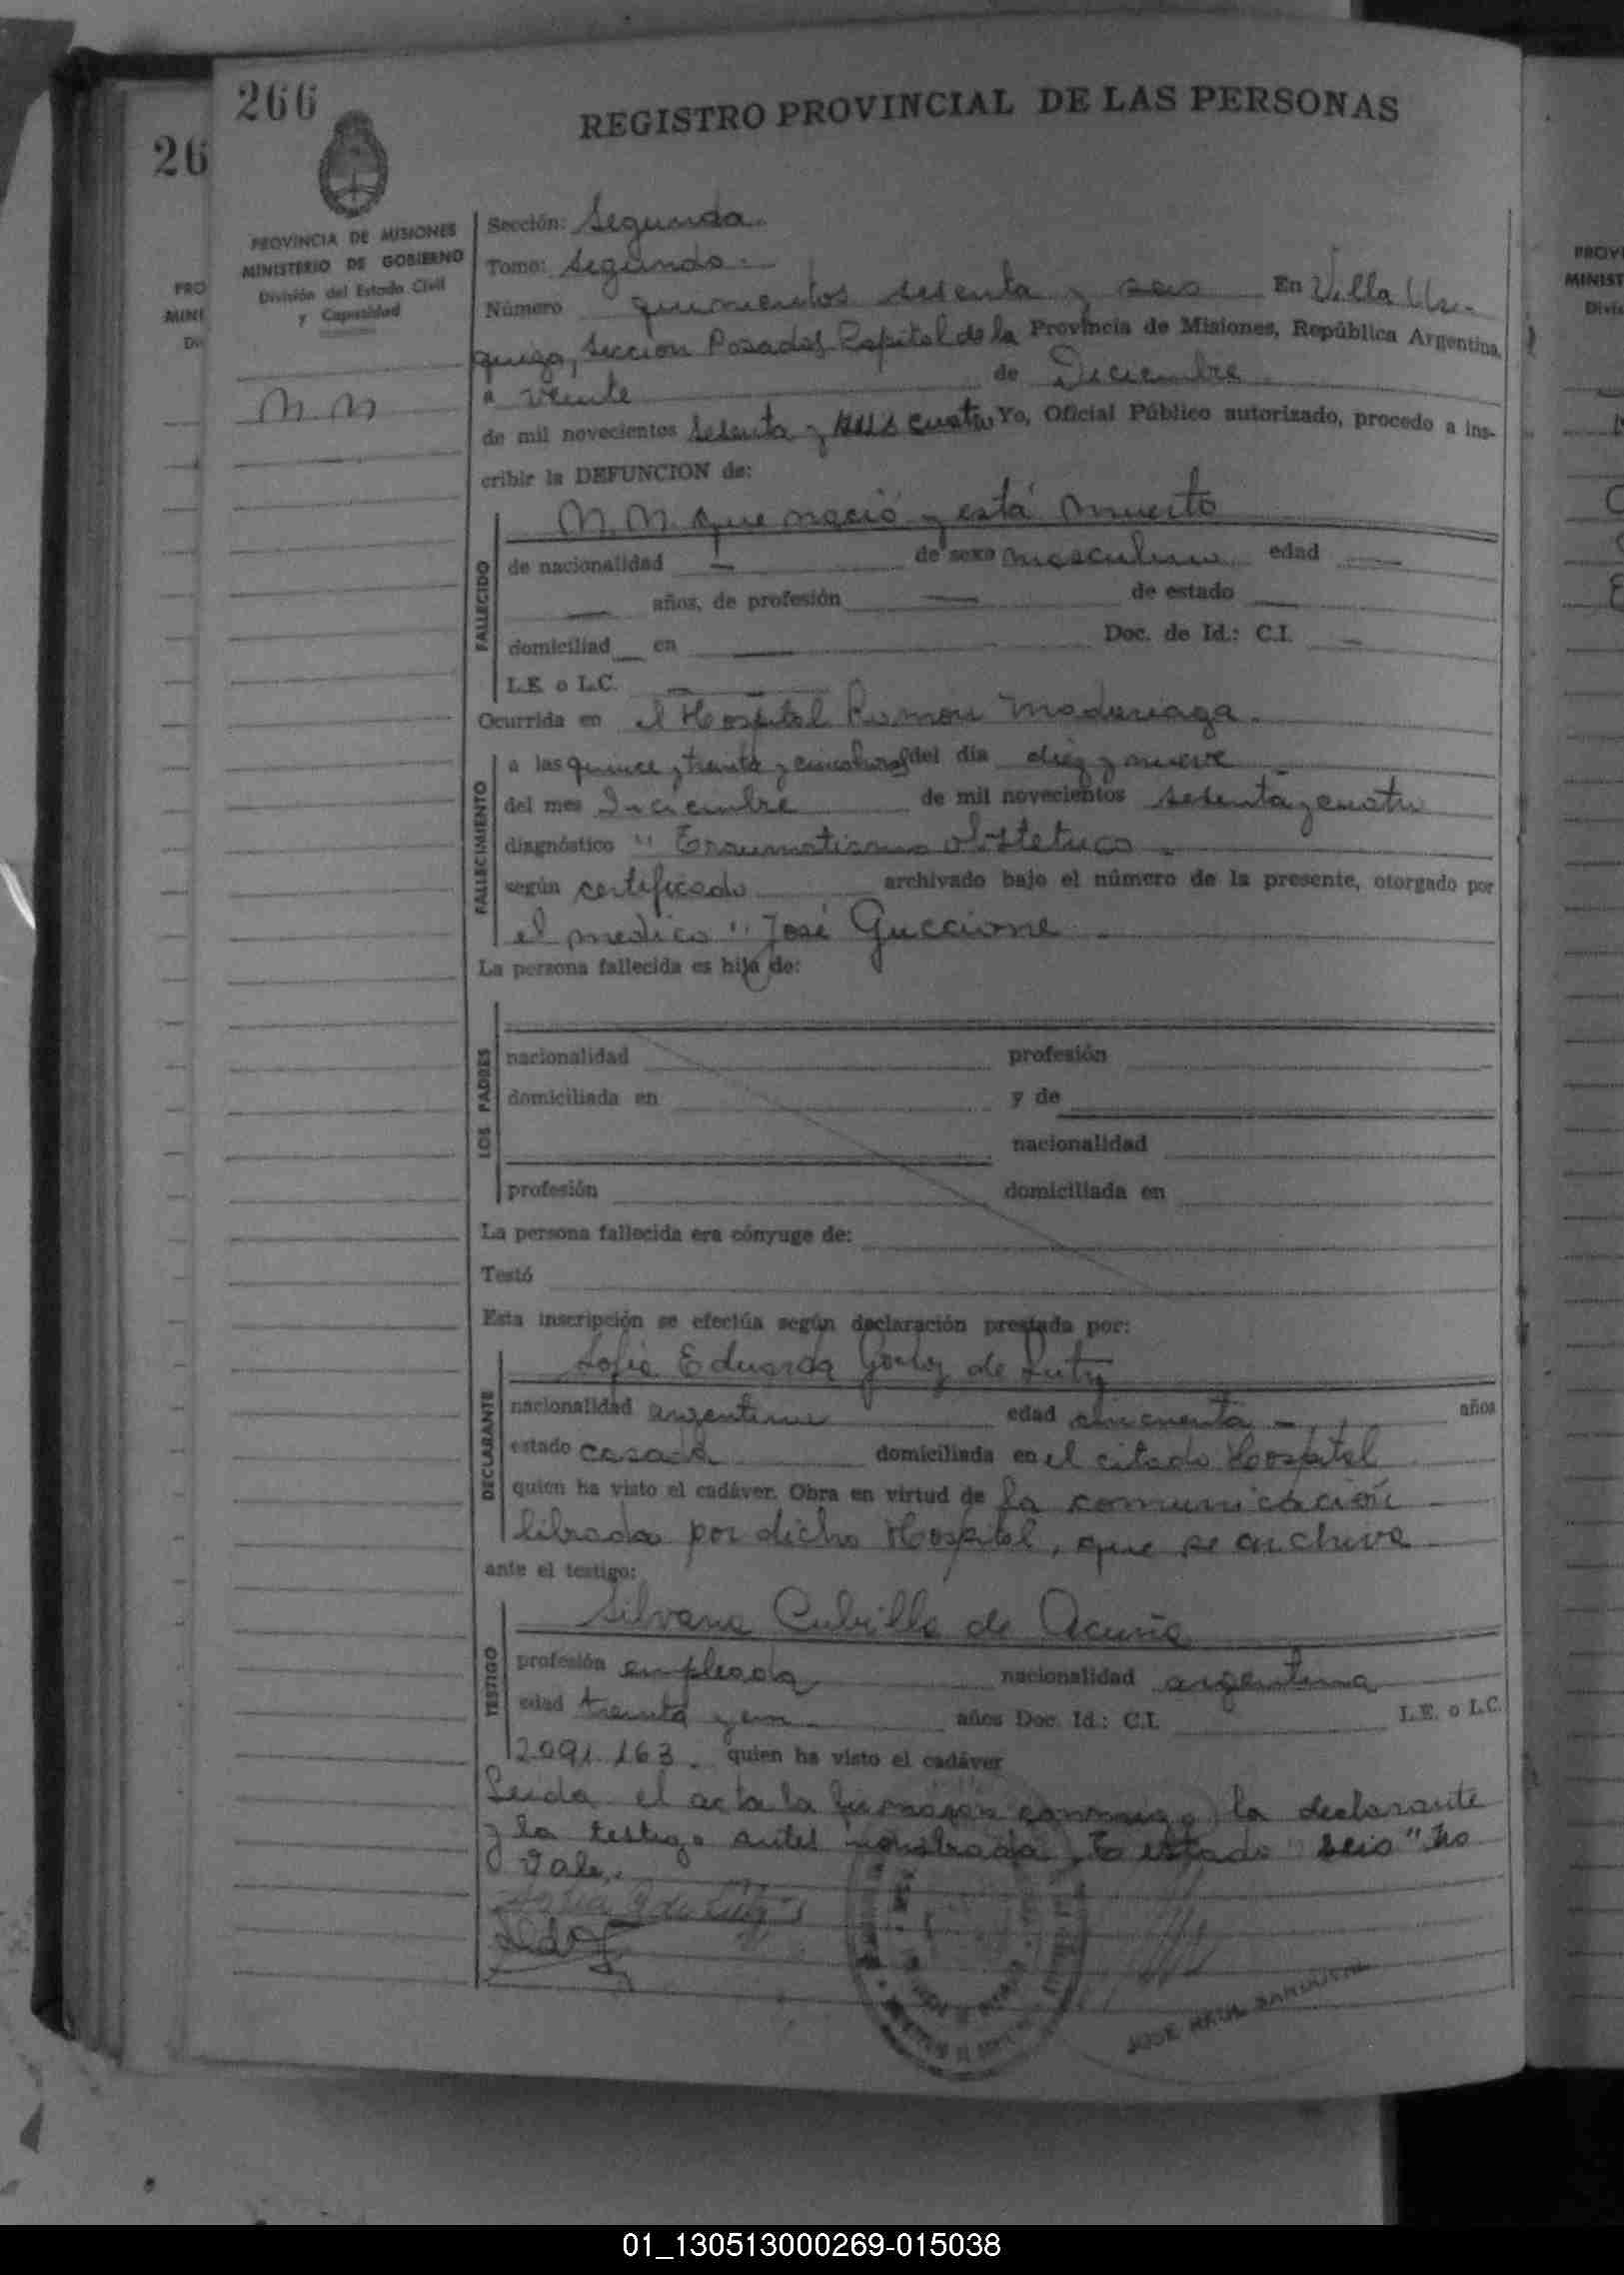 266
26
REGISTRO PROVINCIAL DE LAS PERSONAS
PROVINCIA DE MISIONES
MINISTERIO DE GOBIERNO
División del Estado Civil
y Capacidad
N. N
Sección: Segunda.
Tomo: Segundo.
Número quinientos sesenta y seis En Villa Ur-
quiza, Sección Posadas Capital de la Provincia de Misiones, República Argentina,
a veinte de Diciembre
de mil novecientos setenta y seis cuatro Yo, Oficial Público autorizado, procedo a ins-
cribir la DEFUNCION de:
N.N. que nació y está muerto
FALLECIDO
de nacionalidad — de sexo masculino edad —
— años, de profesión — de estado —
domiciliad — en — Doc. de Id.: C.I. —
L.E. o L.C. — —
Ocurrida en el Hospital Ramón Madariaga.
FALLECIMIENTO
a las quince y treinta y cinco horas del día diez y nueve
del mes Diciembre de mil novecientos setenta y cuatro
diagnóstico "Traumatismo obstetrico.
según certificado archivado bajo el número de la presente, otorgado por
el medico "José Guccione.
La persona fallecida es hijo de:
LOS PADRES
nacionalidad profesión
domiciliada en y de
nacionalidad
profesión domiciliada en
La persona fallecida era cónyuge de:
Testó
Esta inscripción se efectúa según declaración prestada por:
DECLARANTE
Sofia Eduarda de
nacionalidad argentina edad cincuenta — años
estado casada domiciliada en el citado Hospital
quien ha visto el cadáver. Obra en virtud de la comunicación
librada por dicho Hospital, que se archiva
ante el testigo:
TESTIGO
Silvana Cubilla de Acuña
profesión empleada nacionalidad argentina
edad treinta y años Doc. Id.: C.I. L.E. o L.C.
2091.163. quien ha visto el cadáver
Leida el acta la firmaron conmigo la declarante
y la testigo antes nombrada. Testado "seis" No
Vale.
JOSE RAUL SANDOVAL
PROVI
MINIST
Divis
01_130513000269-015038